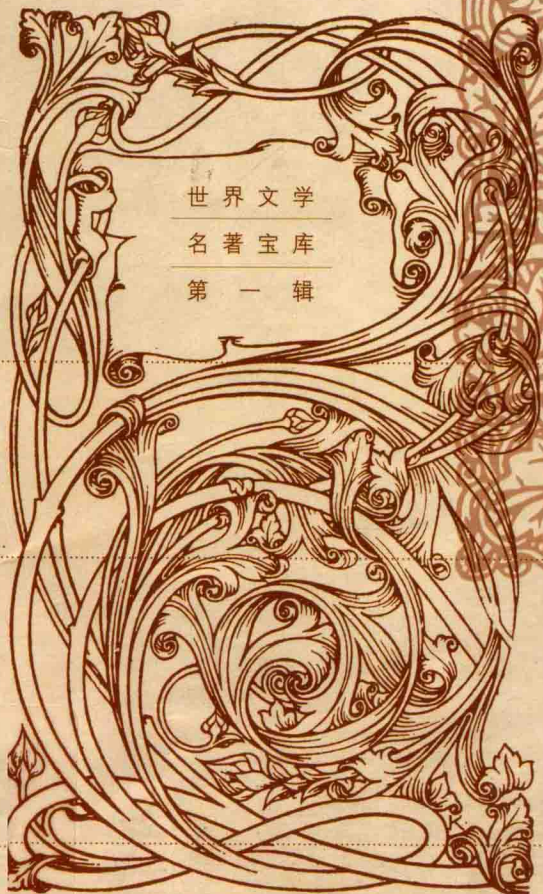 世界文学
名著宝库
第一辑